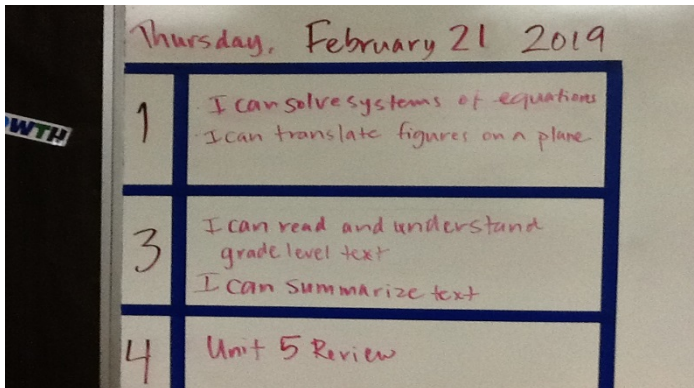 Thursday, February 21 2019
OWTH
1
I can solve systems of equations
I can translate figures on a plane
3
I can read and understand
grade level text
I can summarize text
4
Unit 5 Review